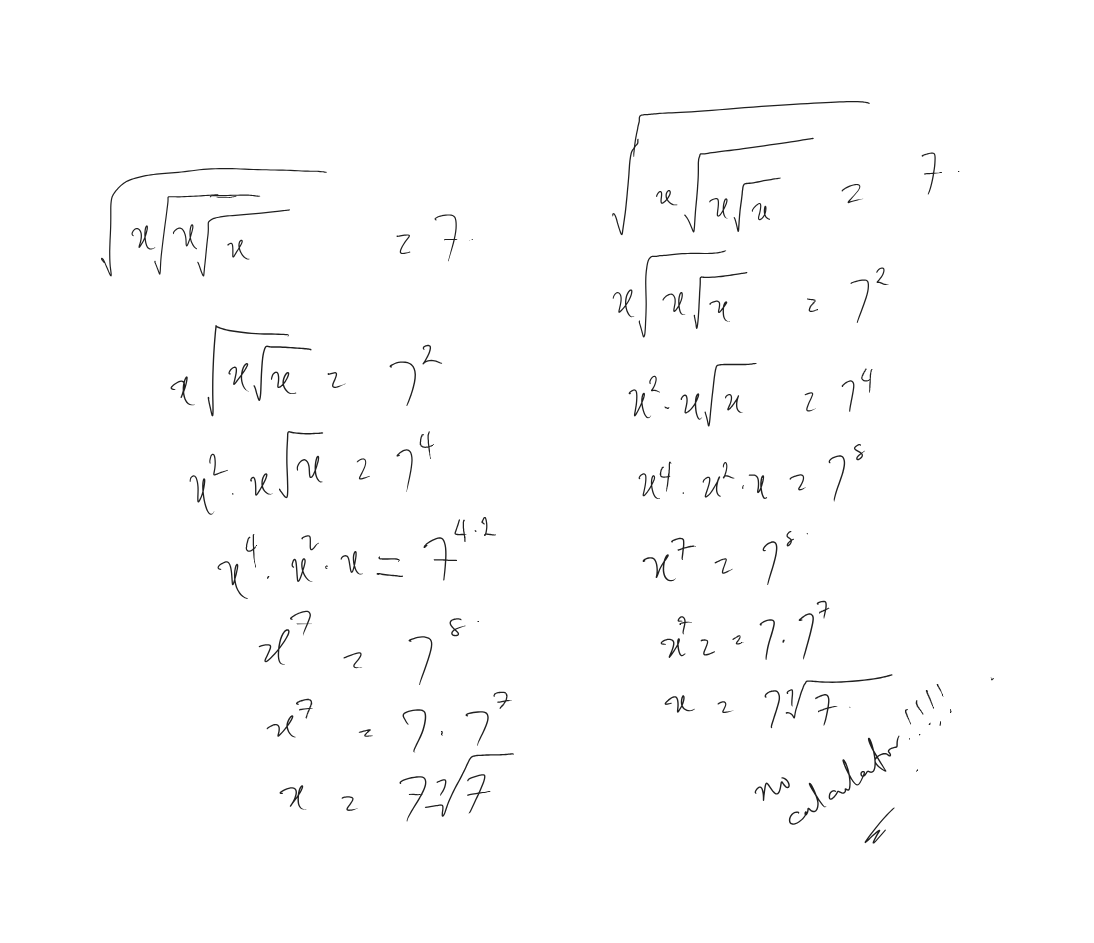 √(x√(x√x)) = 7.
x√(x√x) = 7²
x² · x√x = 7⁴
x⁴ · x² · x = 7⁴·²
x⁷ = 7⁸.
x⁷ = 7 · 7⁷
x = 7 ⁷√7
√(x√(x√x)) = 7.
x√(x√x) = 7²
x² · x√x = 7⁴
x⁴ · x² · x = 7⁸
x⁷ = 7⁸.
x⁷ = = 7 · 7⁷
x = 7 ⁷√7
no
calculator!!!!